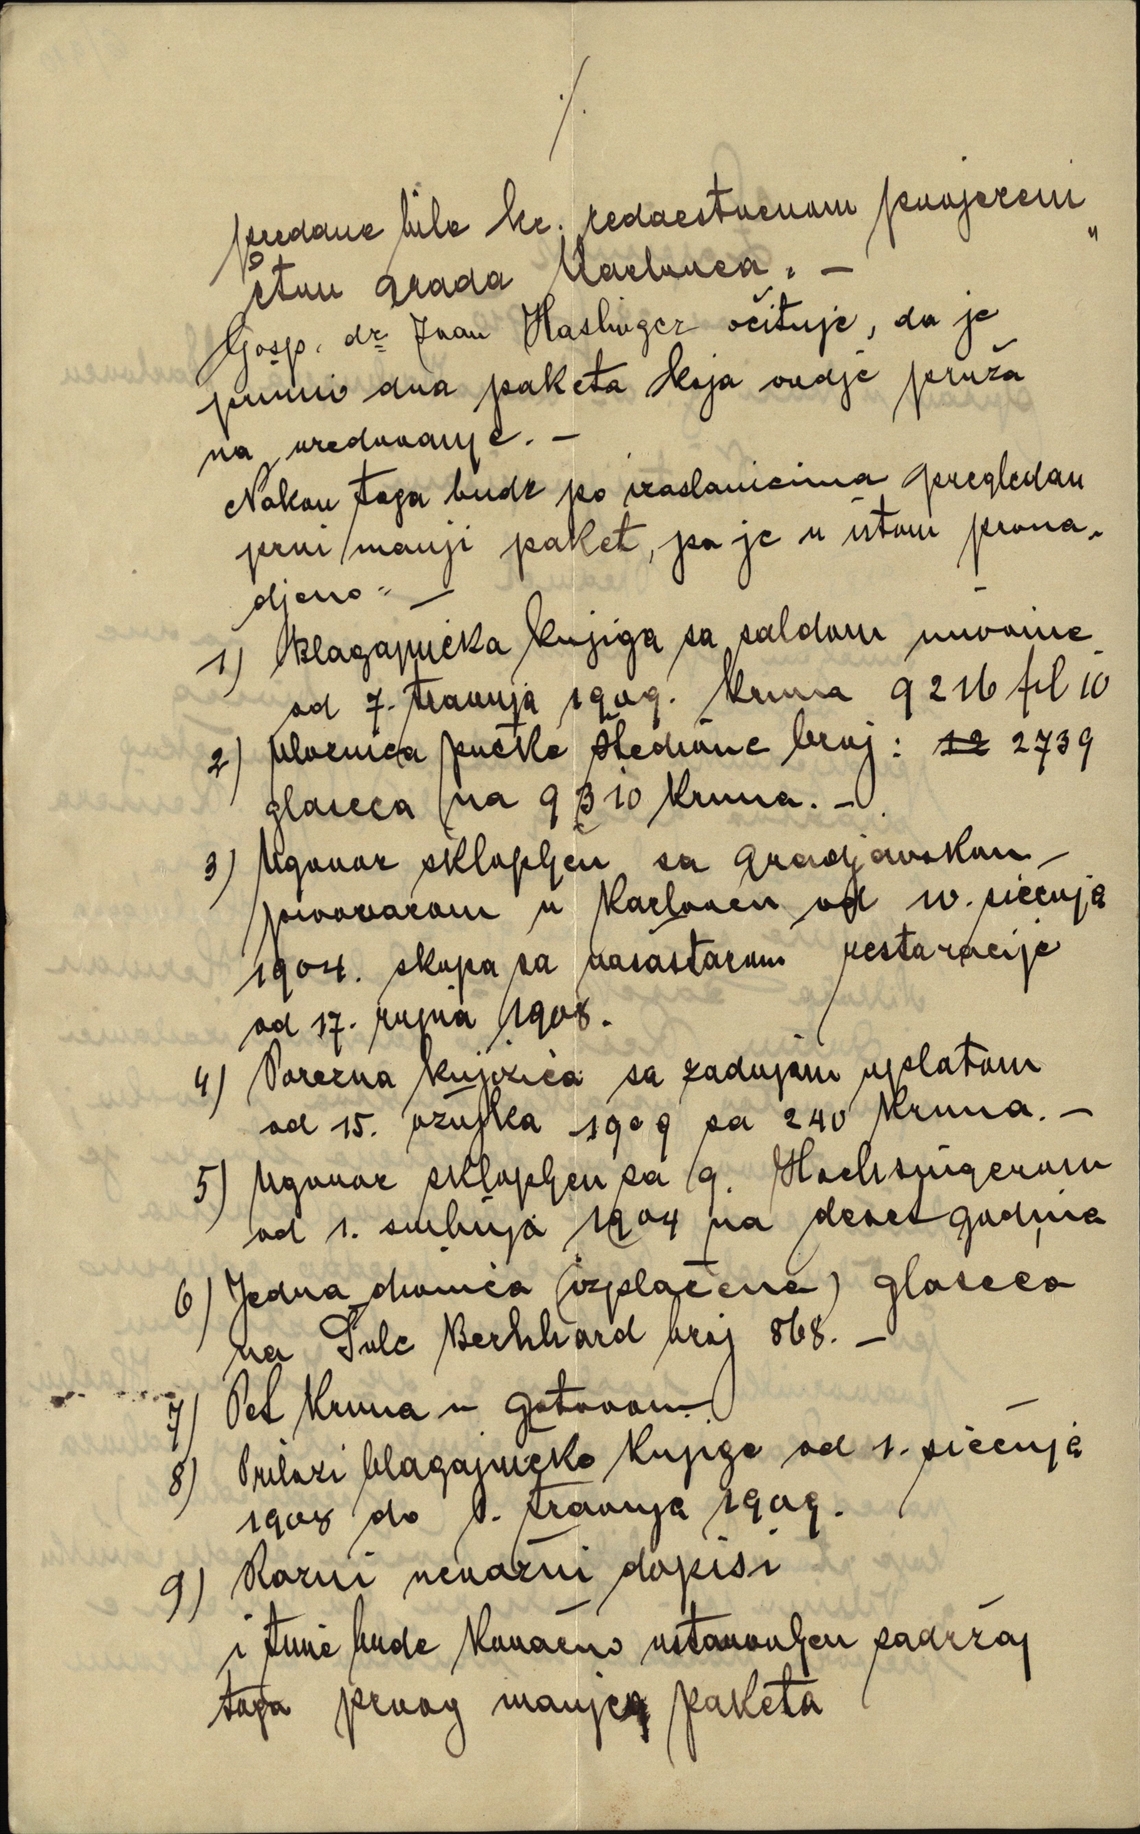 ./.
predane bile kr. redarstvenom povjereni„
čtvu grada Karlovca. –
Gosp. dr Ivan Hashinger očituje, da je
primio dva paketa koja ovdje pruža
na uredovanje. –
Nakon toga bude po izaslanicima pregledan
prvi manji paket, pa je u istom prona-
djeno" –
1) Blagajnička knjiga sa saldom imovine
od 7. travnja 1909. kruna 9216 fil 10
2) uložnica pučke štedione broj: 12 2739
glaseća na 9310 kruna. –
3) Ugovor sklopljen sa gradjanskom
pivovarom u Karlovcu od 10. siečnja
1904. skupa sa restauracije
od 17. rujna 1908.
4) Porezna knjižica sa zadnjom uplatom
od 15. ožujka 1909 sa 240 kruna. –
5) Ugovor sklopljen sa g. Hochsingerom
od 1. svibnja 1904 na deset godina
6) Jedna dionica (izplaćena) glaseća
na Šulc Bernhard broj 868. –
7) Pet kruna u gotovom
8) Prilozi blagajničke knjige od 1. siečnja
1908 do 1. travnja 1909.
9) Razni nevažni dopisi
i time bude konačno ustanovljen sadržaj
toga prvog manjeg paketa